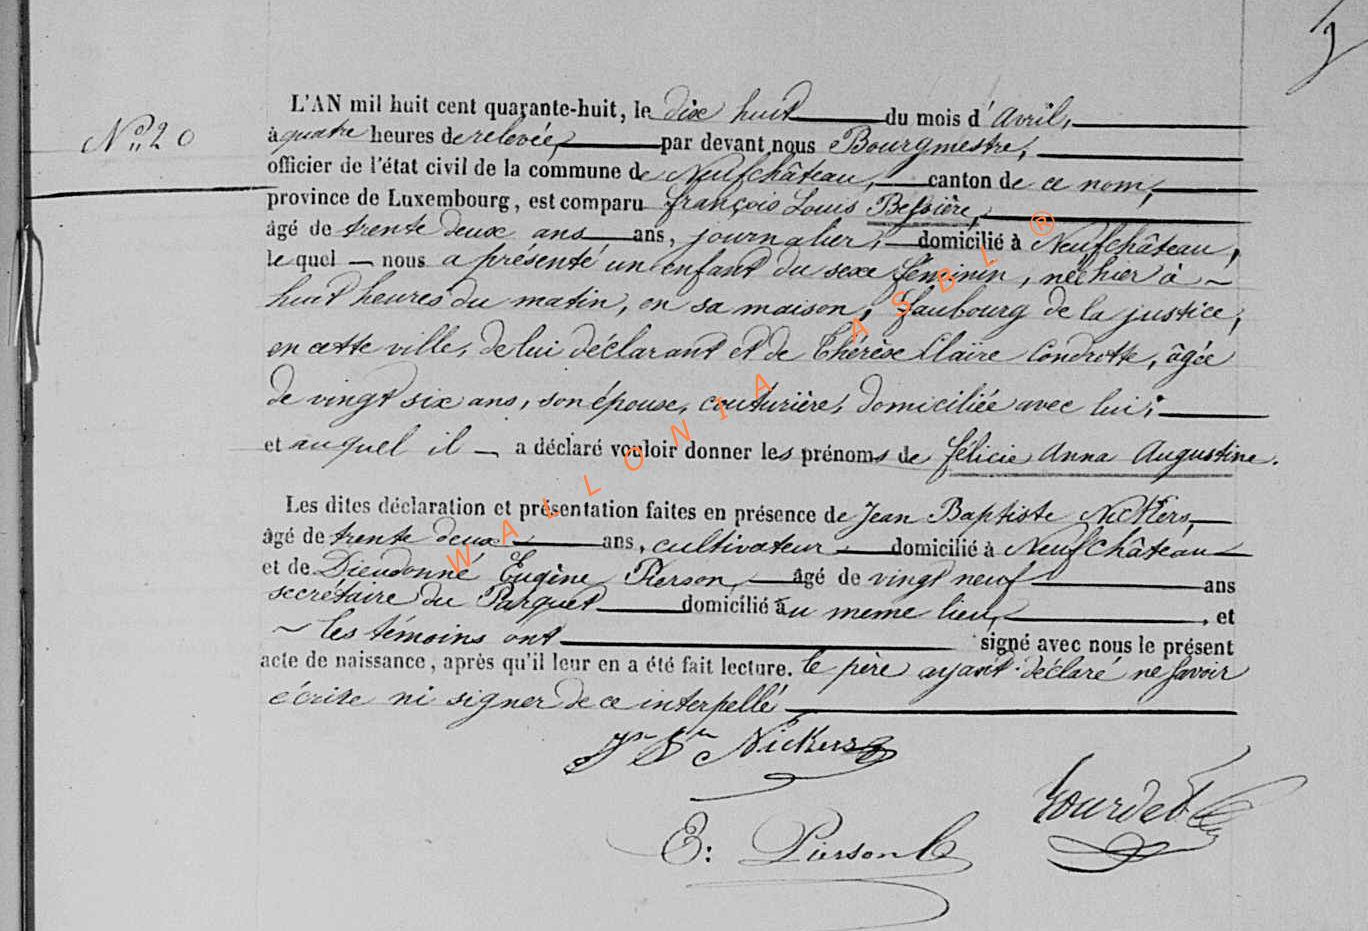 N° 20
L'AN mil huit cent quarante-huit, le dix huit du mois d'avril,
à quatre heures de relevée, par devant nous Bourgmestre,
officier de l'état civil de la commune de Neufchâteau, canton de ce nom,
province de Luxembourg, est comparu françois Louis Bessière,
âgé de trente deux ans ans, journalier, domicilié à Neufchâteau,
le quel — nous a présenté un enfant du sexe féminin, né hier à ~
huit heures du matin, en sa maison, faubourg de la justice,
en cette ville, de lui déclarant et de Thérèse Claire Condrotte, âgée
de vingt six ans, son épouse, couturière, domiciliée avec lui,
et auquel il — a déclaré vouloir donner les prénoms de félicie Anna Augustine.
Les dites déclaration et présentation faites en présence de Jean Baptiste Nickers,
âgé de trente deux ans, cultivateur domicilié à Neufchâteau
et de Dieudonné Eugène Pierson, âgé de vingt neuf ans
secrétaire du Parquet domicilié au meme lieu, et
~ les témoins ont signé avec nous le présent
acte de naissance, après qu'il leur en a été fait lecture. le père ayant déclaré ne savoir
écrire ni signer de ce interpellé
Jn Bte Nickers
Gourdet
E: Pierson
WALLONIA ASBL ®